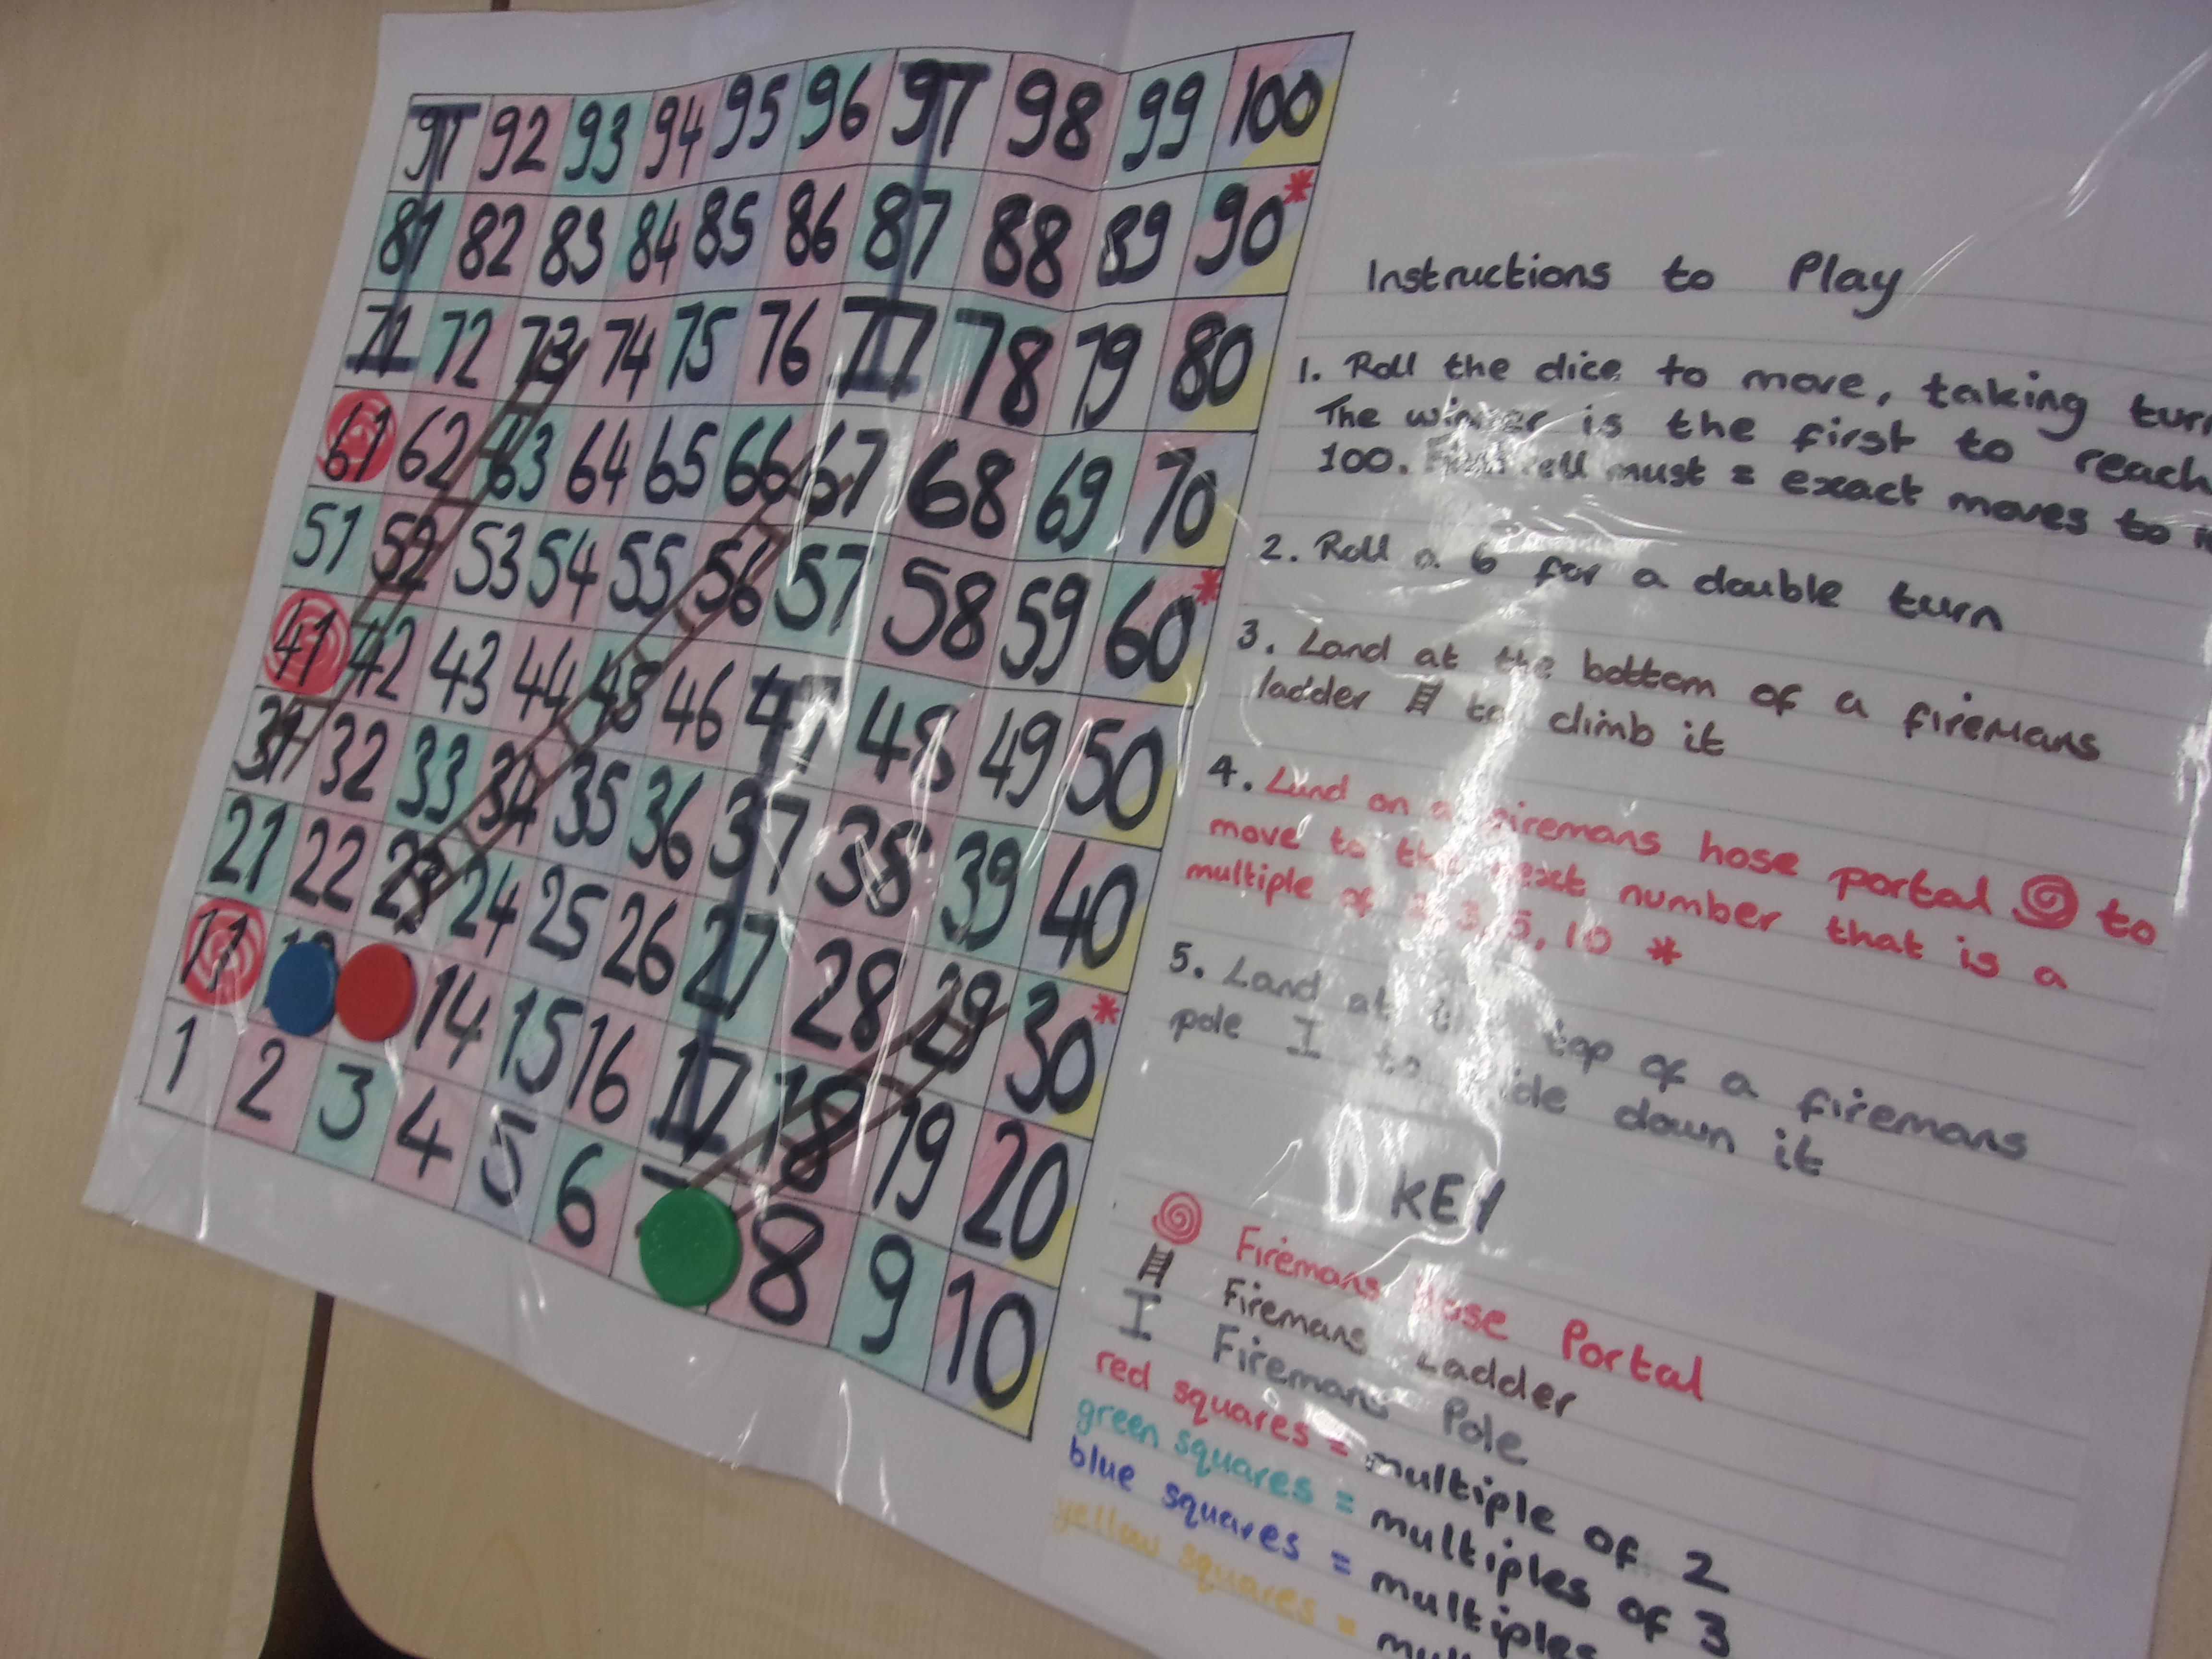 91 92 93 94 95 96 97 98 99 100
81 82 83 84 85 86 87 88 89 90*
71 72 73 74 75 76 77 78 79 80
61 62 63 64 65 66 67 68 69 70
51 52 53 54 55 56 57 58 59 60*
41 42 43 44 45 46 47 48 49 50
31 32 33 34 35 36 37 38 39 40
21 22 23 24 25 26 27 28 29 30*
11 14 15 16 17 18 19 20
1 2 3 4 5 6 8 9 10
Instructions to Play
1. Roll the dice to move, taking
The winner is the first to reach
100. must = exact moves to
2. Roll a 6 for a double turn
3. Land at the bottom of a firemans
ladder to climb it
4. Land on a firemans hose portal to
move to the next number that is a
multiple of 2, 3, 5, 10 *
5. Land at the top of a firemans
pole to slide down it
KEY
Firemans Hose Portal
Firemans Ladder
Firemans Pole
red squares = multiple of 2
green squares = multiples of 3
blue squares = multiples
yellow squares =